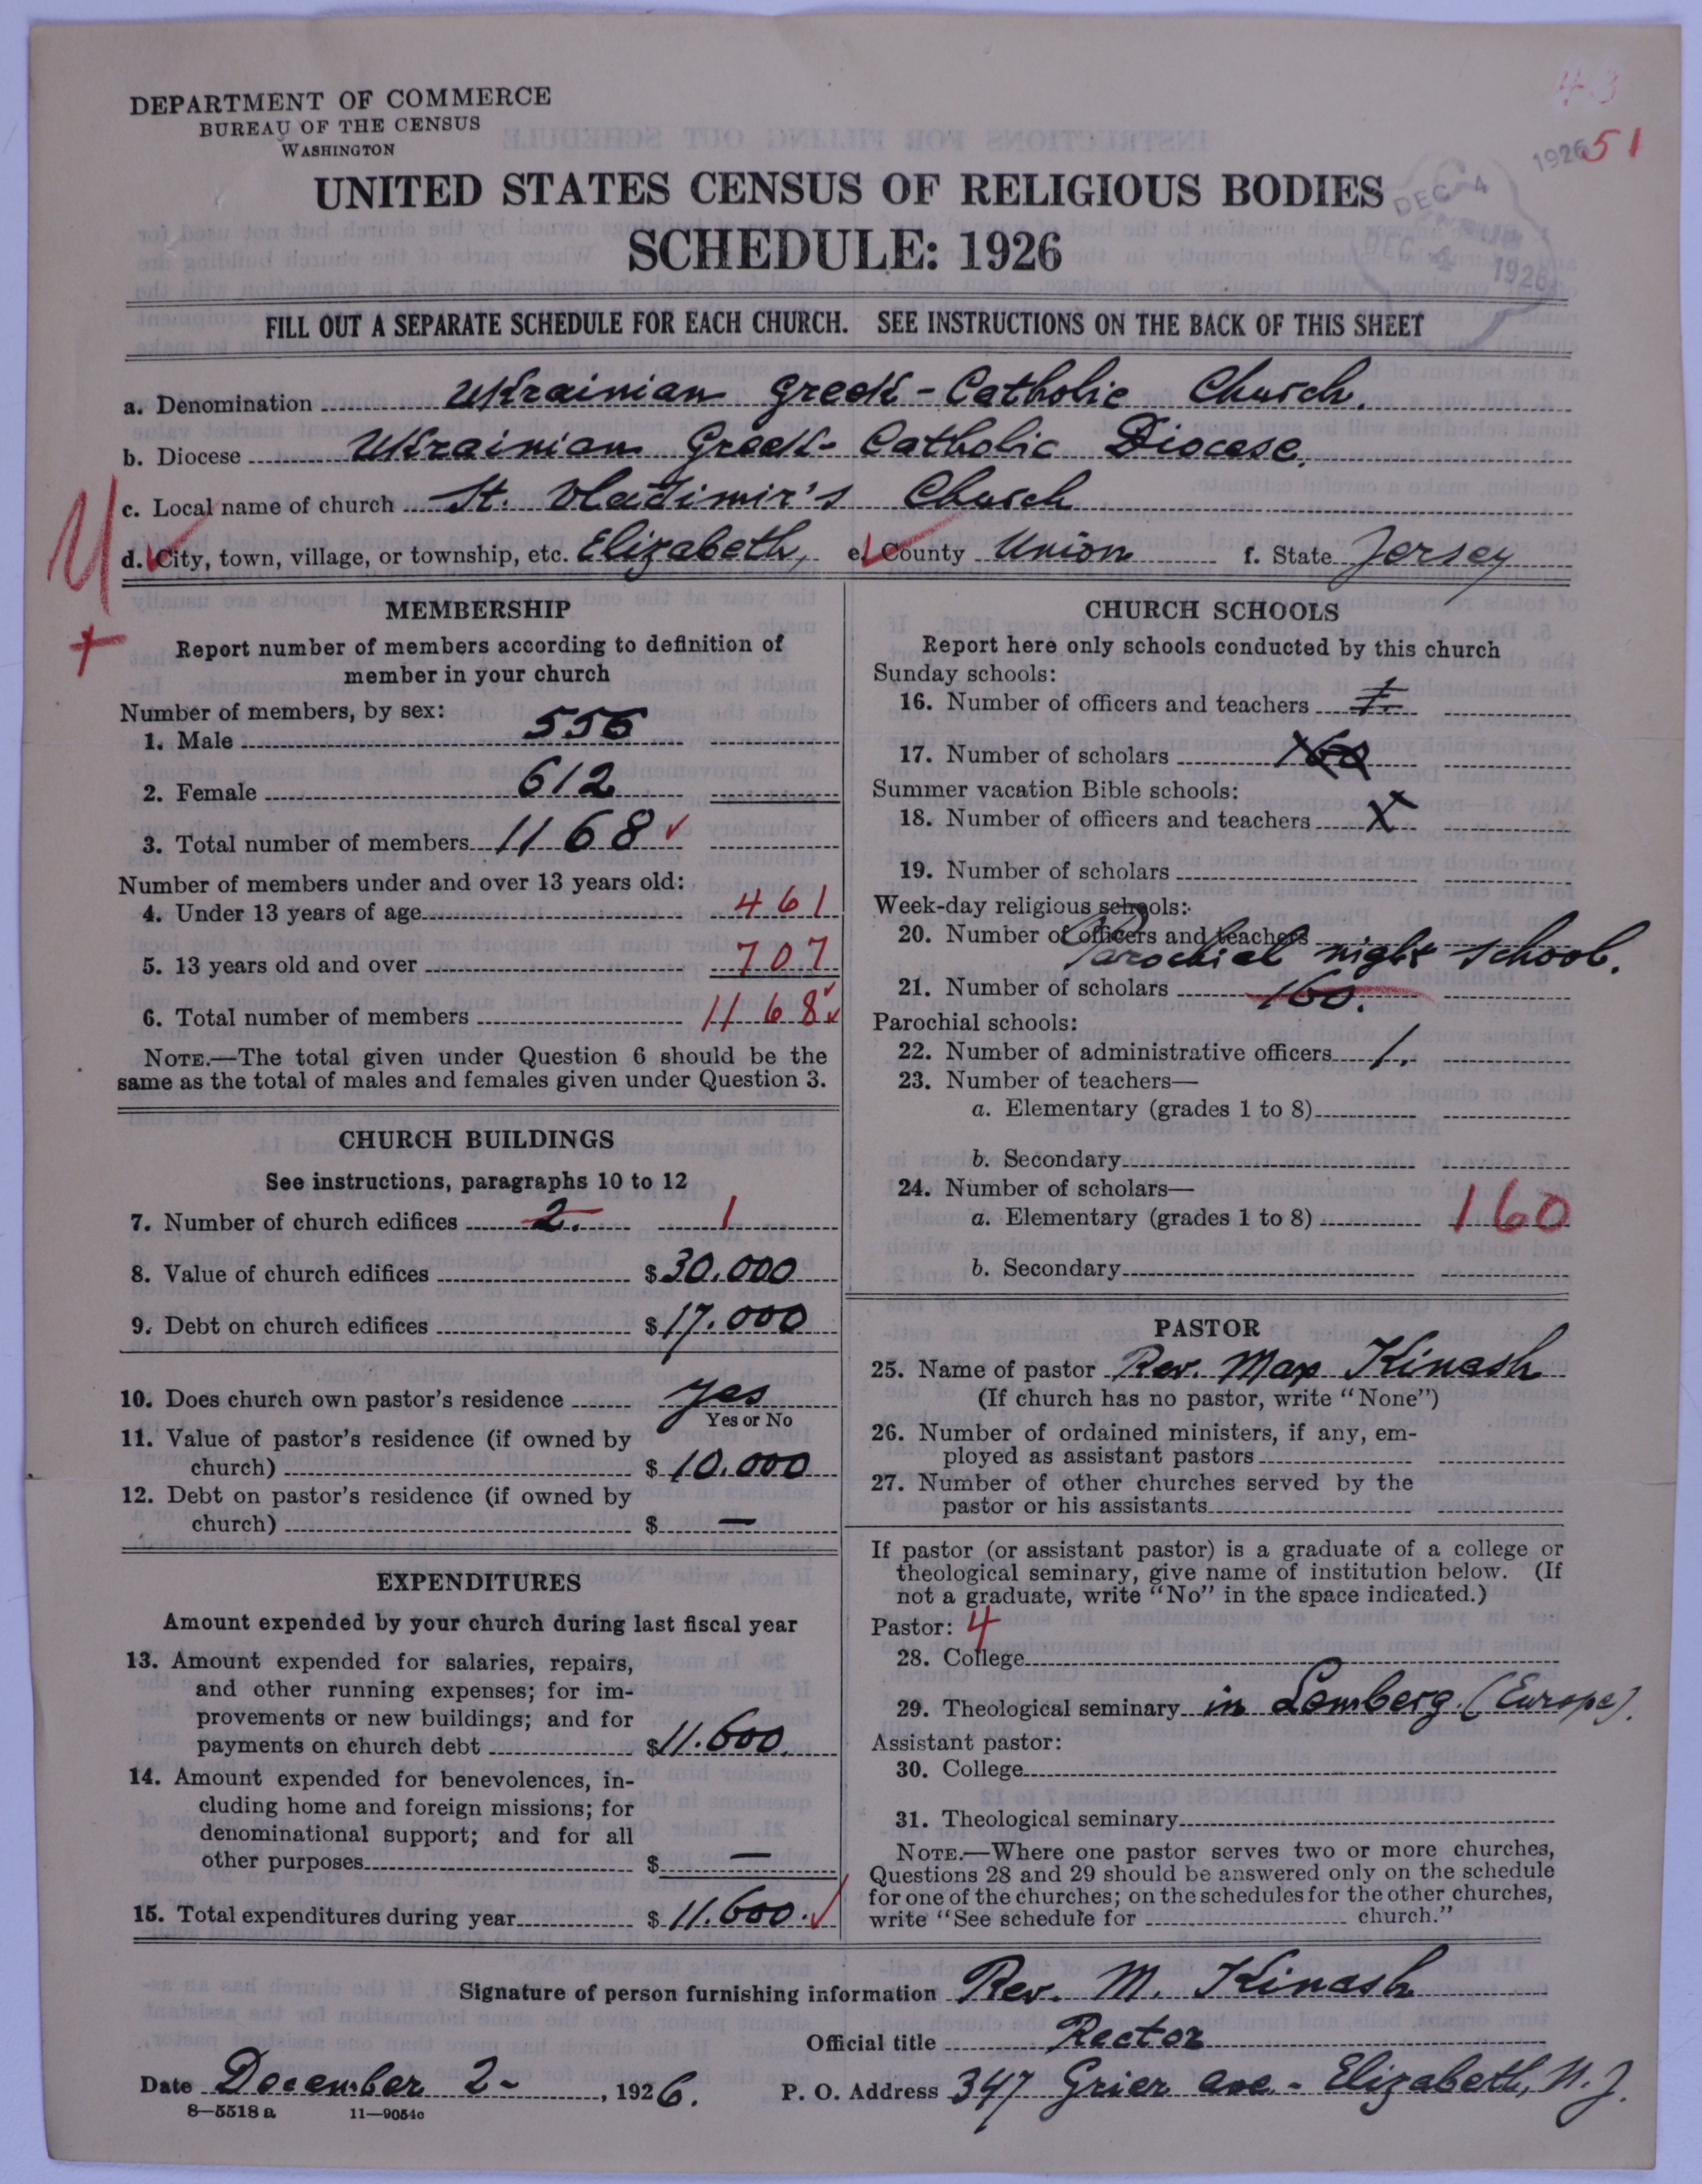 43
1926 51
DEPARTMENT OF COMMERCE
BUREAU OF THE CENSUS
WASHINGTON
DEC -4
DEC 4 1926
UNITED STATES CENSUS OF RELIGIOUS BODIES
SCHEDULE: 1926
FILL OUT A SEPARATE SCHEDULE FOR EACH CHURCH. SEE INSTRUCTIONS ON THE BACK OF THIS SHEET
a. Denomination Ukrainian Greek-Catholic Church.
b. Diocese Ukrainian Greek-Catholic Diocese.
c. Local name of church St. Vladimir's Church
d. City, town, village, or township, etc. Elizabeth, e. County Union f. State Jersey
MEMBERSHIP
Report number of members according to definition of
member in your church
Number of members, by sex:
1. Male 556
2. Female 612
3. Total number of members 1168 ✓
Number of members under and over 13 years old:
4. Under 13 years of age 461
5. 13 years old and over 707
6. Total number of members 1168 ✓
NOTE.—The total given under Question 6 should be the
same as the total of males and females given under Question 3.
CHURCH BUILDINGS
See instructions, paragraphs 10 to 12
7. Number of church edifices 2. 1
8. Value of church edifices $ 30.000
9. Debt on church edifices $ 17.000
10. Does church own pastor's residence yes
Yes or No
11. Value of pastor's residence (if owned by
church) $ 10.000
12. Debt on pastor's residence (if owned by
church) $ —
EXPENDITURES
Amount expended by your church during last fiscal year
13. Amount expended for salaries, repairs,
and other running expenses; for im-
provements or new buildings; and for
payments on church debt $ 11.600.
14. Amount expended for benevolences, in-
cluding home and foreign missions; for
denominational support; and for all
other purposes $ —
15. Total expenditures during year $ 11.600. ✓
CHURCH SCHOOLS
Report here only schools conducted by this church
Sunday schools:
16. Number of officers and teachers
17. Number of scholars 160
Summer vacation Bible schools:
18. Number of officers and teachers X
19. Number of scholars
Week-day religious schools:
20. Number of officers and teachers
Parochial night school.
21. Number of scholars 160.
Parochial schools:
22. Number of administrative officers 1.
23. Number of teachers—
a. Elementary (grades 1 to 8)
b. Secondary
24. Number of scholars—
a. Elementary (grades 1 to 8) 160
b. Secondary
PASTOR
25. Name of pastor Rev. Max Kinash
(If church has no pastor, write "None")
26. Number of ordained ministers, if any, em-
ployed as assistant pastors
27. Number of other churches served by the
pastor or his assistants
If pastor (or assistant pastor) is a graduate of a college or
theological seminary, give name of institution below. (If
not a graduate, write "No" in the space indicated.)
Pastor: 4
28. College
29. Theological seminary in Lemberg. (Europe).
Assistant pastor:
30. College
31. Theological seminary
NOTE.—Where one pastor serves two or more churches,
Questions 28 and 29 should be answered only on the schedule
for one of the churches; on the schedules for the other churches,
write "See schedule for church."
Signature of person furnishing information Rev. M. Kinash
Official title Rector
Date December 2- , 1926. P. O. Address 347 Grier ave - Elizabeth, N. J.
8—5518 a 11—9054c